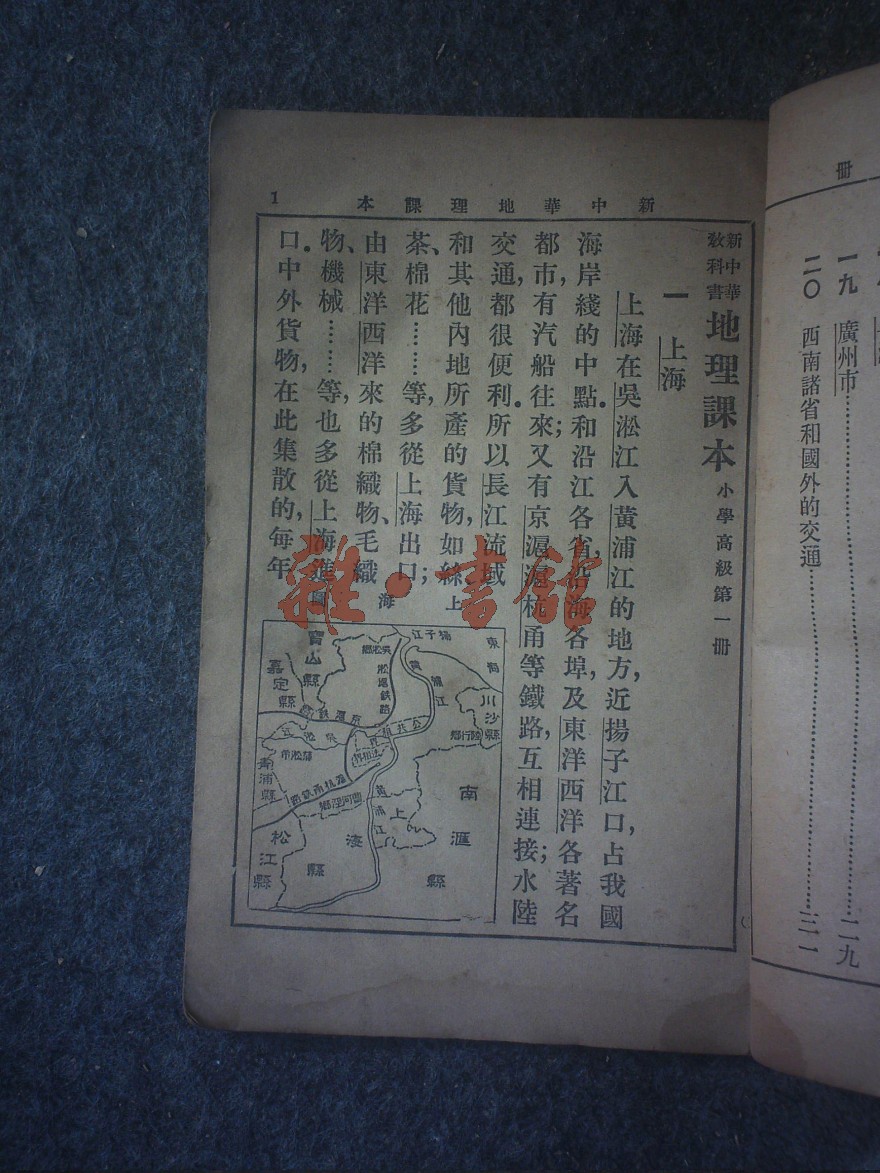 冊
一九 廣州市……二九
二〇 西南諸省和國外的交通……三一
新中華地理課本
1
新中華教科書 地理課本 小學高級第一冊
一 上海
上海在吳淞江入黃浦江的地方，近揚子江口，占我國
海岸綫的中點。和沿江各省，沿海各埠，及東洋西洋各著名
都市，有汽船往來；又有京滬、滬杭甬等鐵路，互相連接；水陸
交通，都很便利。所以長江流域
和其他內地所產的貨物，如絲、
茶、棉花……等，多從上海出口；
由東洋西洋來的棉織物、毛織
物、機械……等，也多從上海進
口。中外貨物，在此集散的，每年
上海
寶山縣
嘉定縣
青浦縣
松江縣
上海縣
南滙縣
川沙縣
揚子江
黃浦江
淞滬鐵路
黃浦江
雜·書館